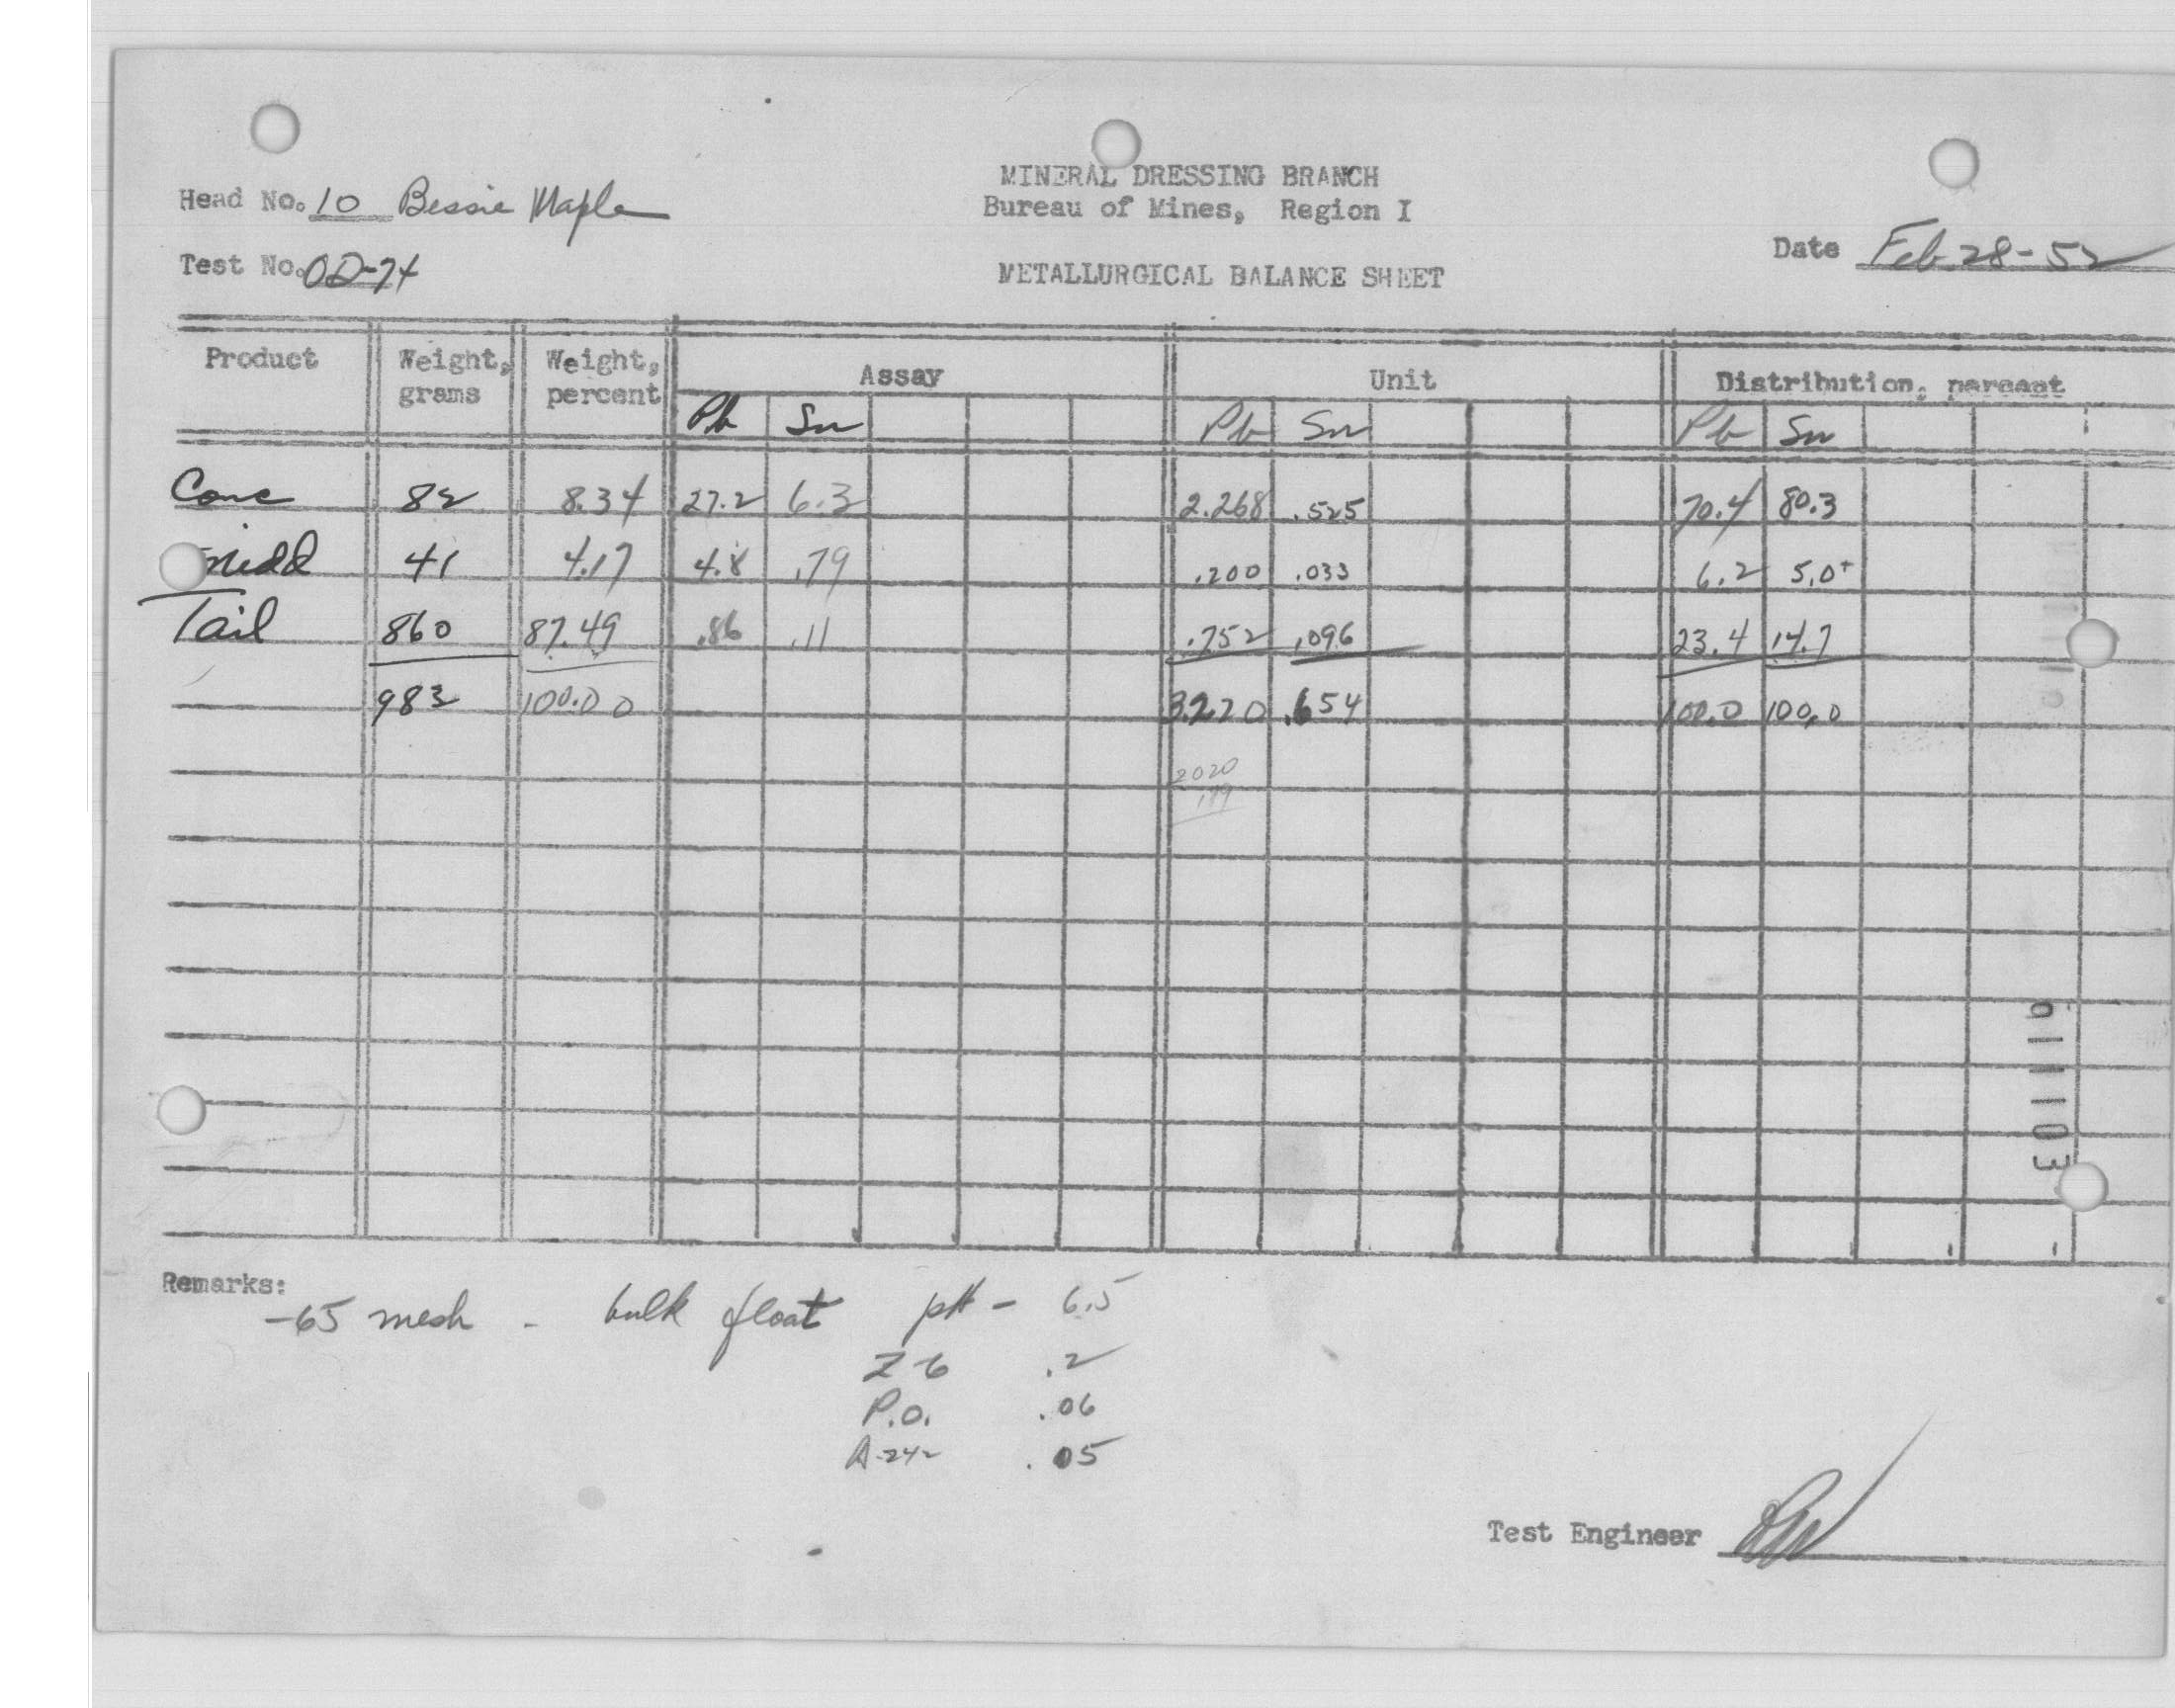 MINERAL DRESSING BRANCH
Head No. 10 Bessie Maple
Bureau of Mines, Region I
Date Feb 28-52
Test No. OD-74
METALLURGICAL BALANCE SHEET
Product Weight, grams Weight, percent Assay Unit Distribution, percent
Pb Sn Pb Sn Pb Sn
Conc 82 8.34 27.2 6.3 2.268 .525 70.4 80.3
Midd 41 4.17 4.8 .79 .200 .033 6.2 5.0+
Tail 860 87.49 .86 .11 .752 .096 23.4 14.7
983 100.00 3.220 .654 100.0 100.0
2020
.119
Remarks:
-65 mesh - bulk float pH - 6.5
Z-6 .2
P.O. .06
A-242 .05
Test Engineer